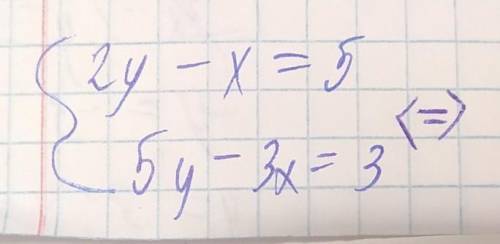 2y - x = 5
5y - 3x = 3 <=>